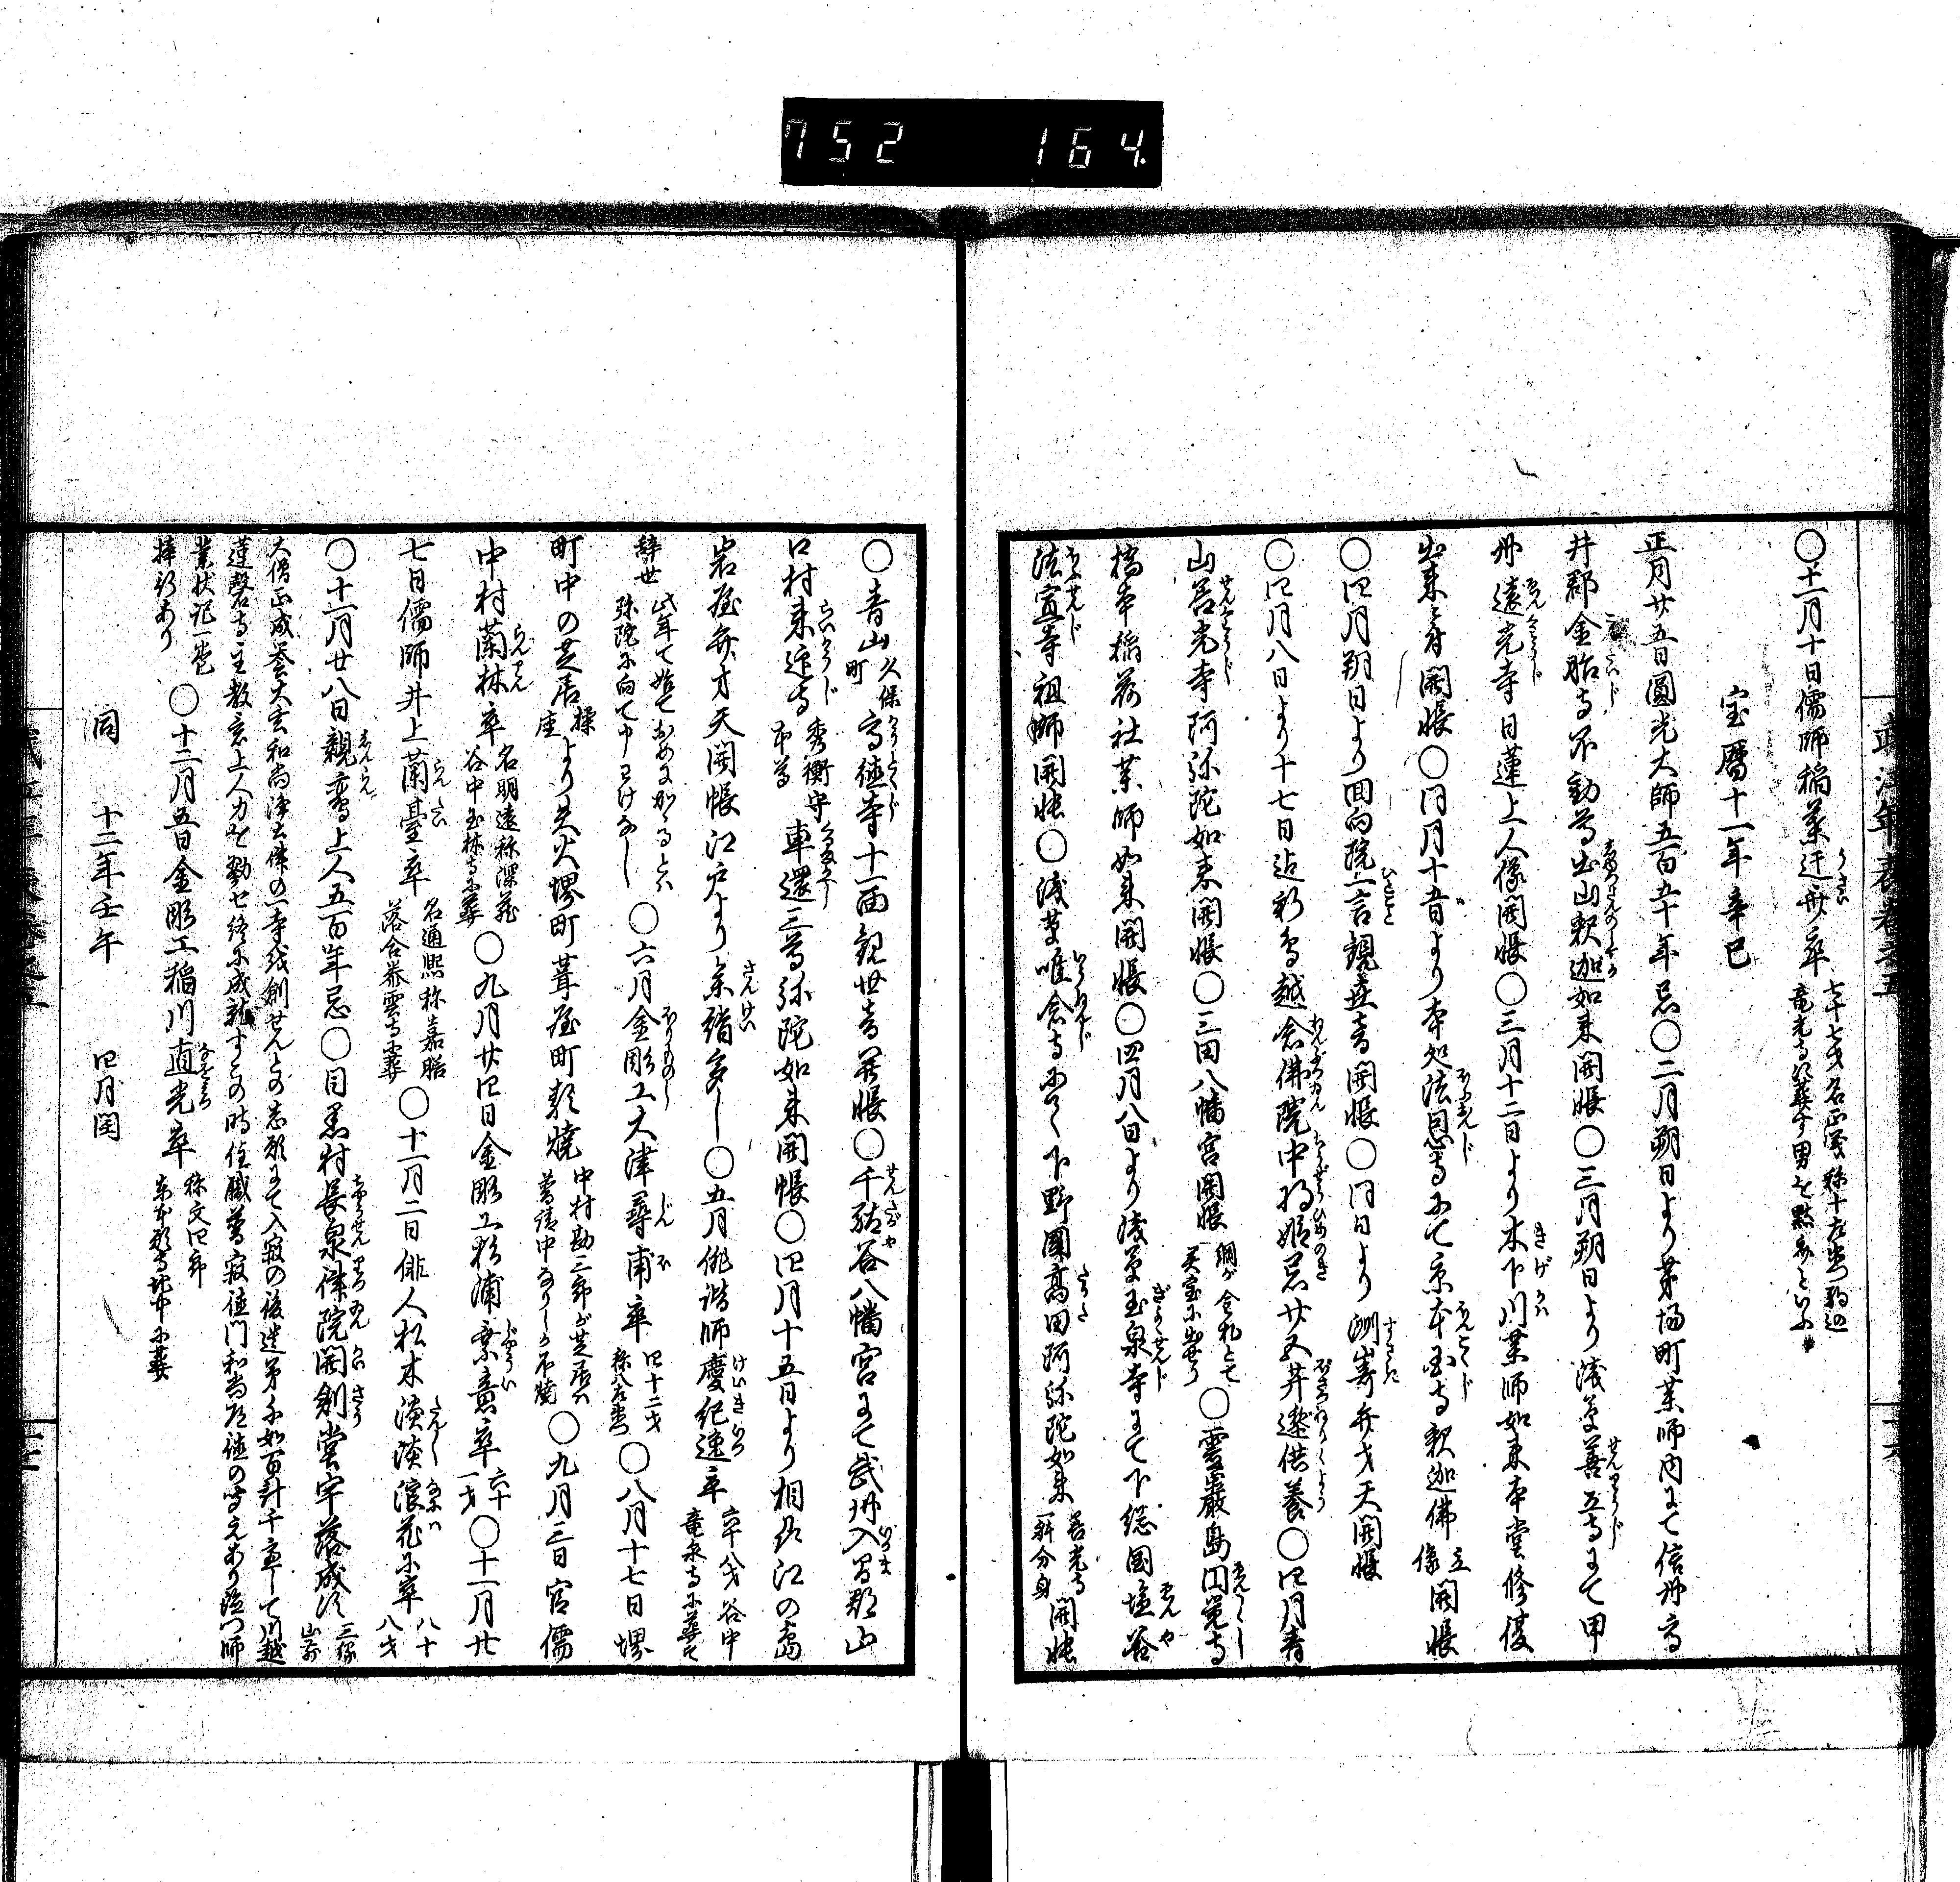 752 164
○十二月十日儒師稲葉迂斎卒 七十七才名正義称十左衛門駒込
竜光寺に葬す男を黙斎といふ
宝暦十一年辛巳
正月廿五日圓光大師五百五十年忌○二月朔日より茅場町薬師内にて信州高
井郡金胎寺不動尊出山釈迦如来開帳○三月朔日より浅草善立寺にて甲
州遠光寺日蓮上人像開帳○三月十二日より木下川薬師如来本堂修復
出来に付開帳○同月十五日より本処法恩寺にて京本国寺釈迦佛立像開帳
○四月朔日より回向院一言観世音開帳○同日より洲崎弁才天開帳
○四月八日より十七日迄新鳥越念佛院中将姫忌廿五菩薩供養○四月青
山善光寺阿弥陀如来開帳○三田八幡宮開帳 綱が金札とて
天宝に出せり ○霊巌島円覚寺
橋本稲荷社薬師如来開帳○四月八日より浅草玉泉寺にて下総国塩谷
法宣寺祖師開帳○浅草唯念寺にて下野國高田阿弥陀如来 善光寺
一躰分身 開帳
○青山久保町高徳寺十一面観世音開帳○千駄谷八幡宮にて武州入間郡山
口村来迎寺 秀衡守
本尊 車還三尊弥陀如来開帳○四月十五日より相州江の島
岩屋弁才天開帳江戸より参詣多し○五月俳諧師慶紀逸卒 六十八才谷中
竜泉寺に葬す
辞世 此年で始てお目にかゝるとハ
弥陀に向て申わけなし ○六月金彫工大津尋甫卒 四十二才
○八月十七日堺
町中の芝居 操座 より失火堺町葺屋町類焼 中村勘三郎が芝居ハ
普請中なりしが不焼 ○九月三日官儒
中村蘭林卒 名明遠称深蔵
谷中玉林寺に葬 ○九月廿四日金彫工杉浦乗意卒 六十一才 ○十一月廿
七日儒師井上蘭臺卒 名通熙称嘉膳
落合泰雲寺葬 ○十一月二日俳人松木淡淡浪花に卒 八十八才
○十一月廿八日親鸞上人五百年忌○目黒村長泉律院開創堂宇落成す 三縁山前
大僧正成誉大玄和尚浄土律の一寺を創せんとの志願にて入寂の後遺弟千如百計千慮して川越
蓮馨寺主教意上人力を勠せ終に成就すこの時住職普寂徳門和尚道徳の聞えあり強門師
業状記一巻
梓行あり ○十二月五日金彫工稲川直克卒 称文四郎
東本願寺地中に葬
同 十二年壬午 四月閏